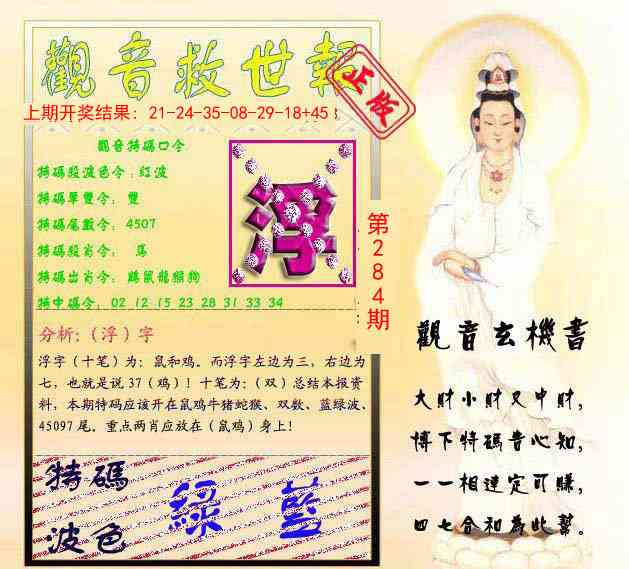 觀音救世報
正版
上期开奖结果：21-24-35-08-29-18+45
觀音特碼口令
特碼段波色令：红波
特碼單雙令：雙
特碼尾數令：4507
特碼殺肖令：馬
特碼出肖令：豬鼠龍猴狗
特中碼令：02 12 15 23 28 31 33 34
浮
第284期
分析：（浮）字
浮字（十笔）为：鼠和鸡。而浮字左边为三，右边为
七，也就是说37（鸡）！十笔为：（双）总结本报资
料，本期特码应该开在鼠鸡牛猪蛇猴、双数、蓝绿波、
45097尾。重点两肖应放在（鼠鸡）身上！
特碼
波色
綠 藍
觀音玄機書
大財小財又中財，
博下特碼音心知，
一一相連定可賺，
四七合和為此幫。